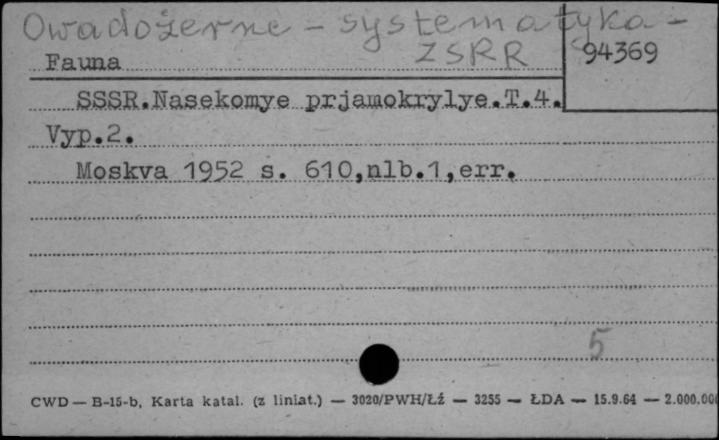 Owadożerne - systematyka -
ZSRR
Fauna
94369
SSSR.Nasekomye prjamokrylye.T.4.
Vyp.2.
Moskva 1952 s. 610,nlb.1,err.
5
CWD — B-15-b, Karta katal. (z liniat.) — 3020/PWH/Łź — 3255 — ŁDA — 15.9.64 — 2.000.00